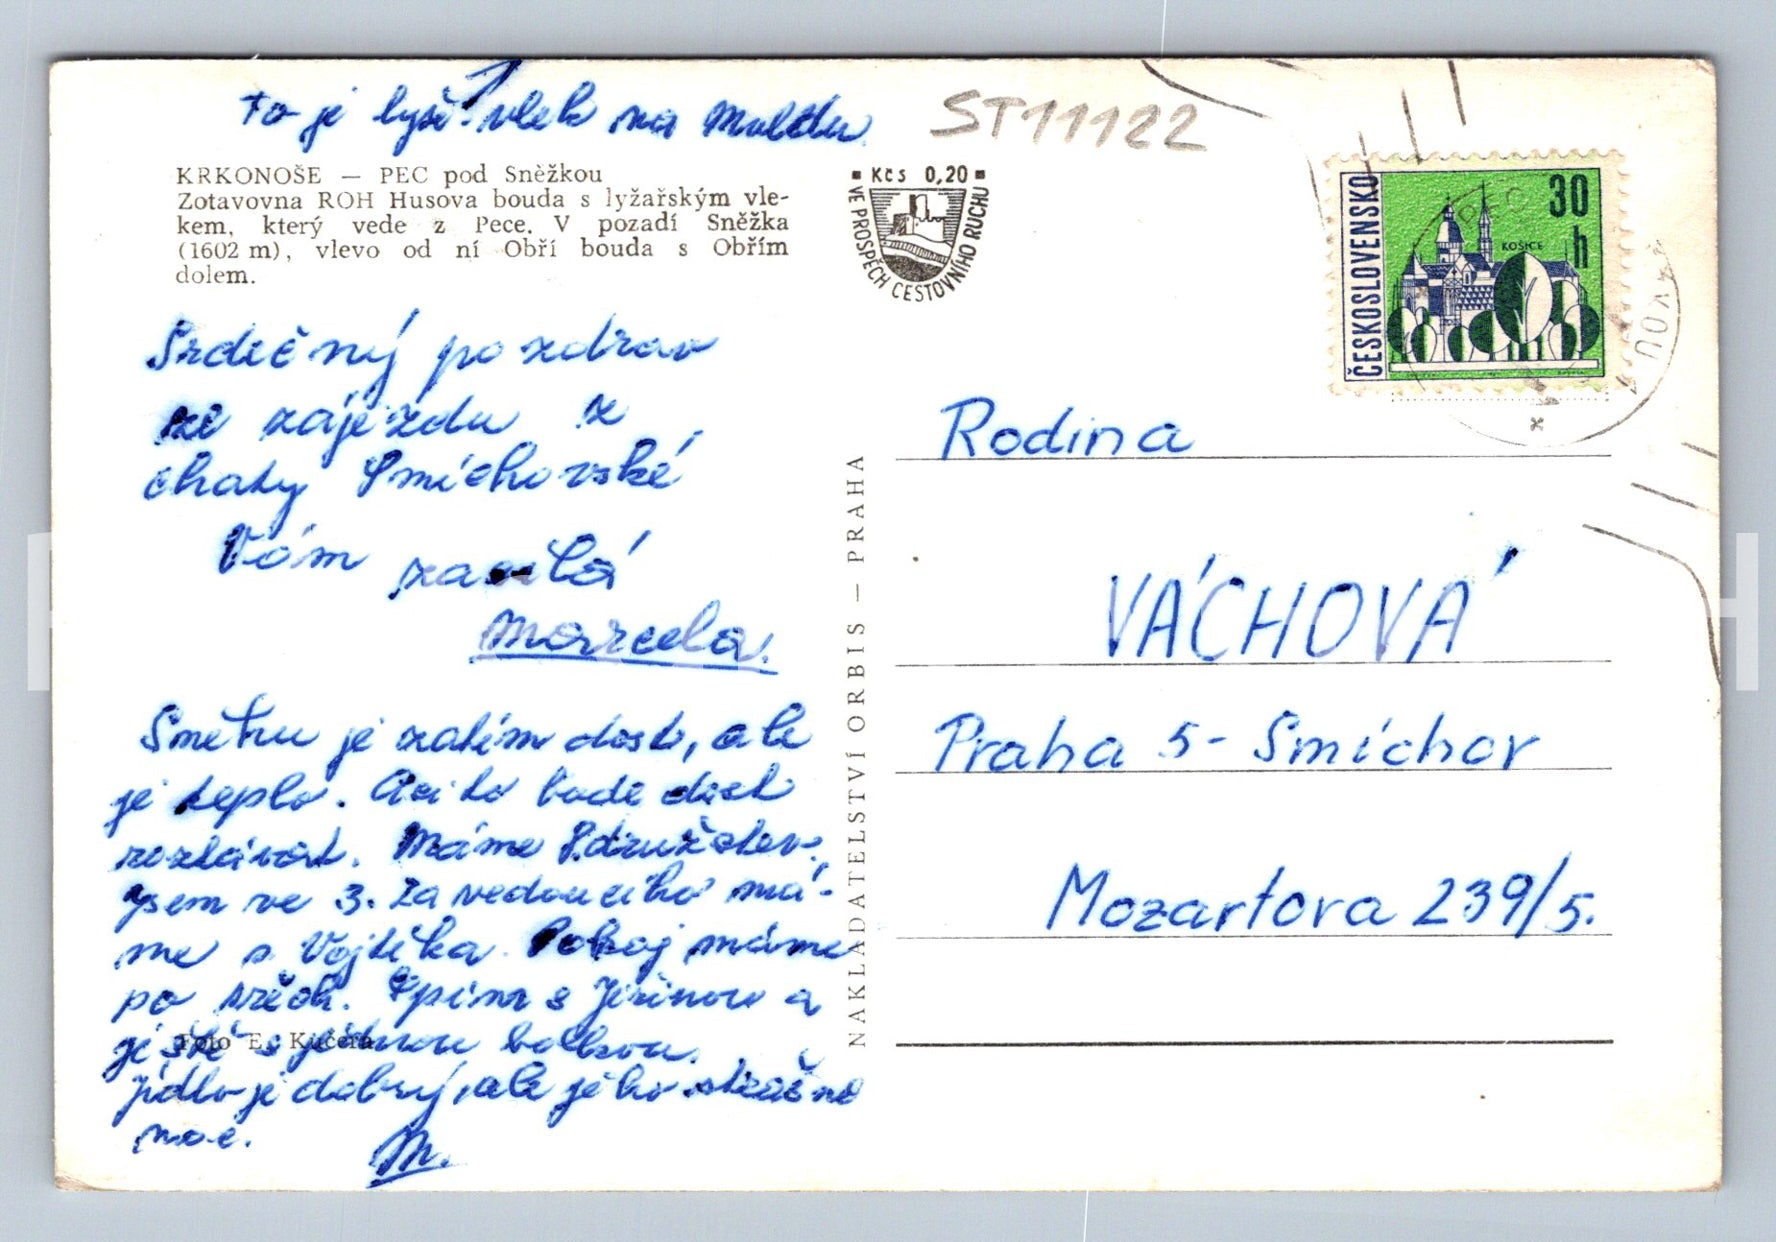 To je lyž. vlek na Muldu
ST11122
KRKONOŠE — PEC pod Sněžkou
Zotavovna ROH Husova bouda s lyžařským vle-
kem, který vede z Pece. V pozadí Sněžka
(1602 m), vlevo od ní Obří bouda s Obřím
dolem.
Kčs 0,20
VE PROSPĚCH CESTOVNÍHO RUCHU
ČESKOSLOVENSKO
30 h
KOŠICE
PEC
Srdečný pozdrav
ze zájezdu z
chaty Smíchovské
Vám zasílá
Marcela.
Sněhu je zatím dost, ale
je teplo. Asi to bude dost
roztávat. Máme 
jsem ve 3. Za vedoucího má-
me s. Vojtěka. Pokoj máme
po třech. Spím s Jiřinou a
ještě s jednou holkou.
Jídlo je dobrý, ale je ho strašně
moc.
M.
Foto E. Kučera
NAKLADATELSTVÍ ORBIS — PRAHA
Rodina
VÁCHOVÁ
Praha 5 - Smíchov
Mozartova 239/5.